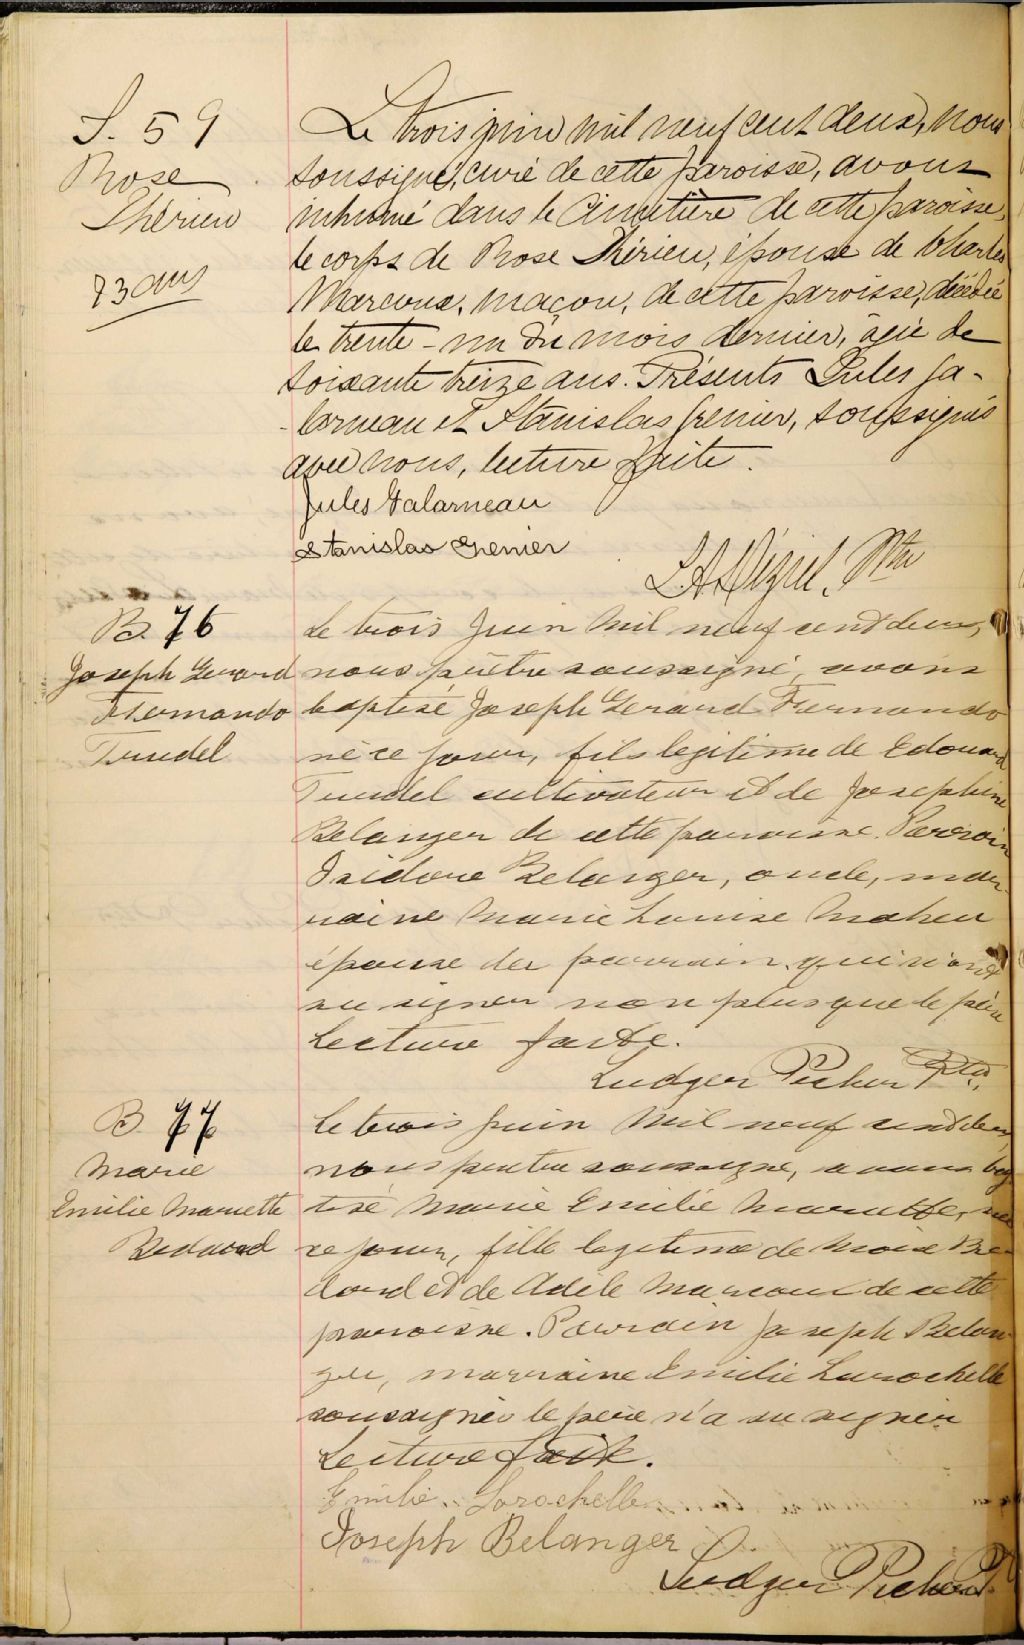 S. 59
Rose
Thérien
73 ans
Le trois juin mil neuf cent deux, nous
soussigné, curé de cette paroisse, avons
inhumé dans le cimetière de cette paroisse,
le corps de Rose Thérien, épouse de Charles
Marcoux, maçon, de cette paroisse, décédée
le trente-un du mois dernier, âgée de
soixante treize ans. Présents Jules Ga-
-larneau et Stanislas Grenier, soussignés
avec nous, lecture faite.
Jules Galarneau
Stanislas Grenier
Ptre
B. 76
Joseph Gerard
Fernando
Trudel
Le trois Juin mil neuf cent deux,
nous prêtre soussigné avons
baptisé Joseph Gerard Fernando
né ce jour, fils legitime de Edouard
Trudel cultivateur et de Josephine
Belanger de cette paroisse. Parrain
Isidore Belanger, oncle, mar-
raine Marie Louise Maheu
épouse du parrain qui n'ont
su signer non plus que le père
Lecture faite.
Ludger Picher Ptre,
B 77
Marie
Emilie Mariette
Bedard
Le trois juin mil neuf cent deux
nous pretre soussigne, avons bap
tisé Marie Emilie Mariette, née
ce jour, fille legitime de Moise Be
dard et de Adèle Marcoux de cette
paroisse. Parrain Joseph Belan
ger, marraine Emilie Larochelle
soussignés le père n'a su signer
Lecture faite.
Emilie Larochelle
Joseph Belanger
Ludger Picher P.